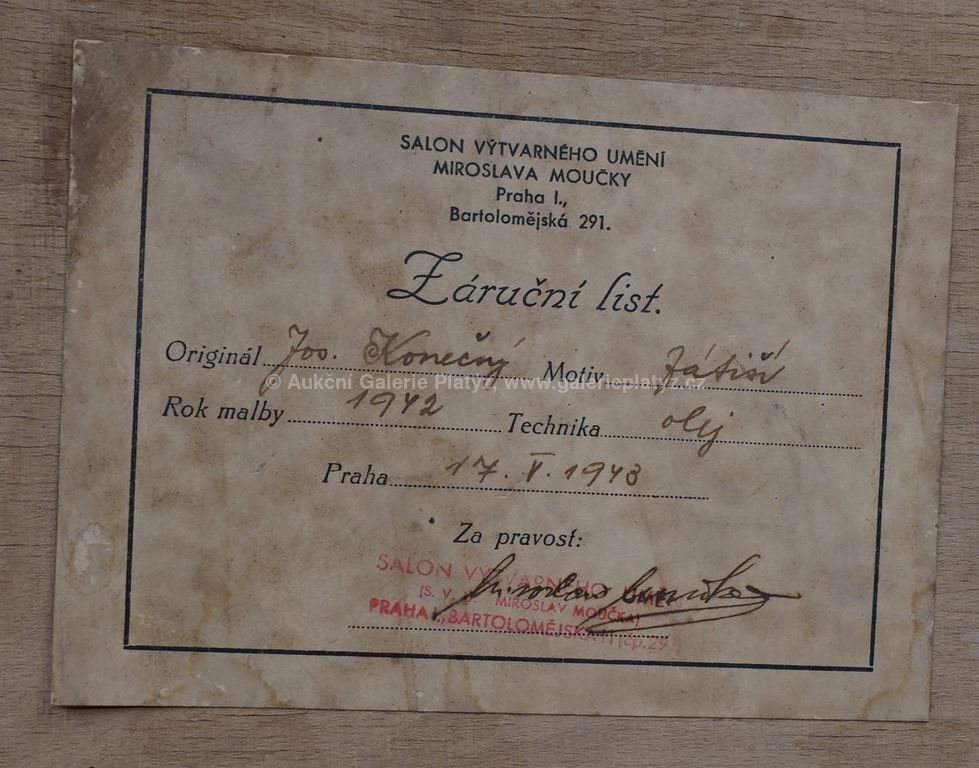 SALON VÝTVARNÉHO UMĚNÍ
MIROSLAVA MOUČKY
Praha I.,
Bartolomějská 291.
Záruční list.
Originál Jos. Konečný Motiv Zátiší
© Aukční Galerie Platýz, www.galerieplatyz.cz
Rok malby 1942 Technika olej
Praha 17. V. 1943
Za pravost:
SALON VÝTVARNÉHO UMĚNÍ
(S. V. U. MIROSLAV MOUČKA)
PRAHA I., BARTOLOMĚJSKÁ